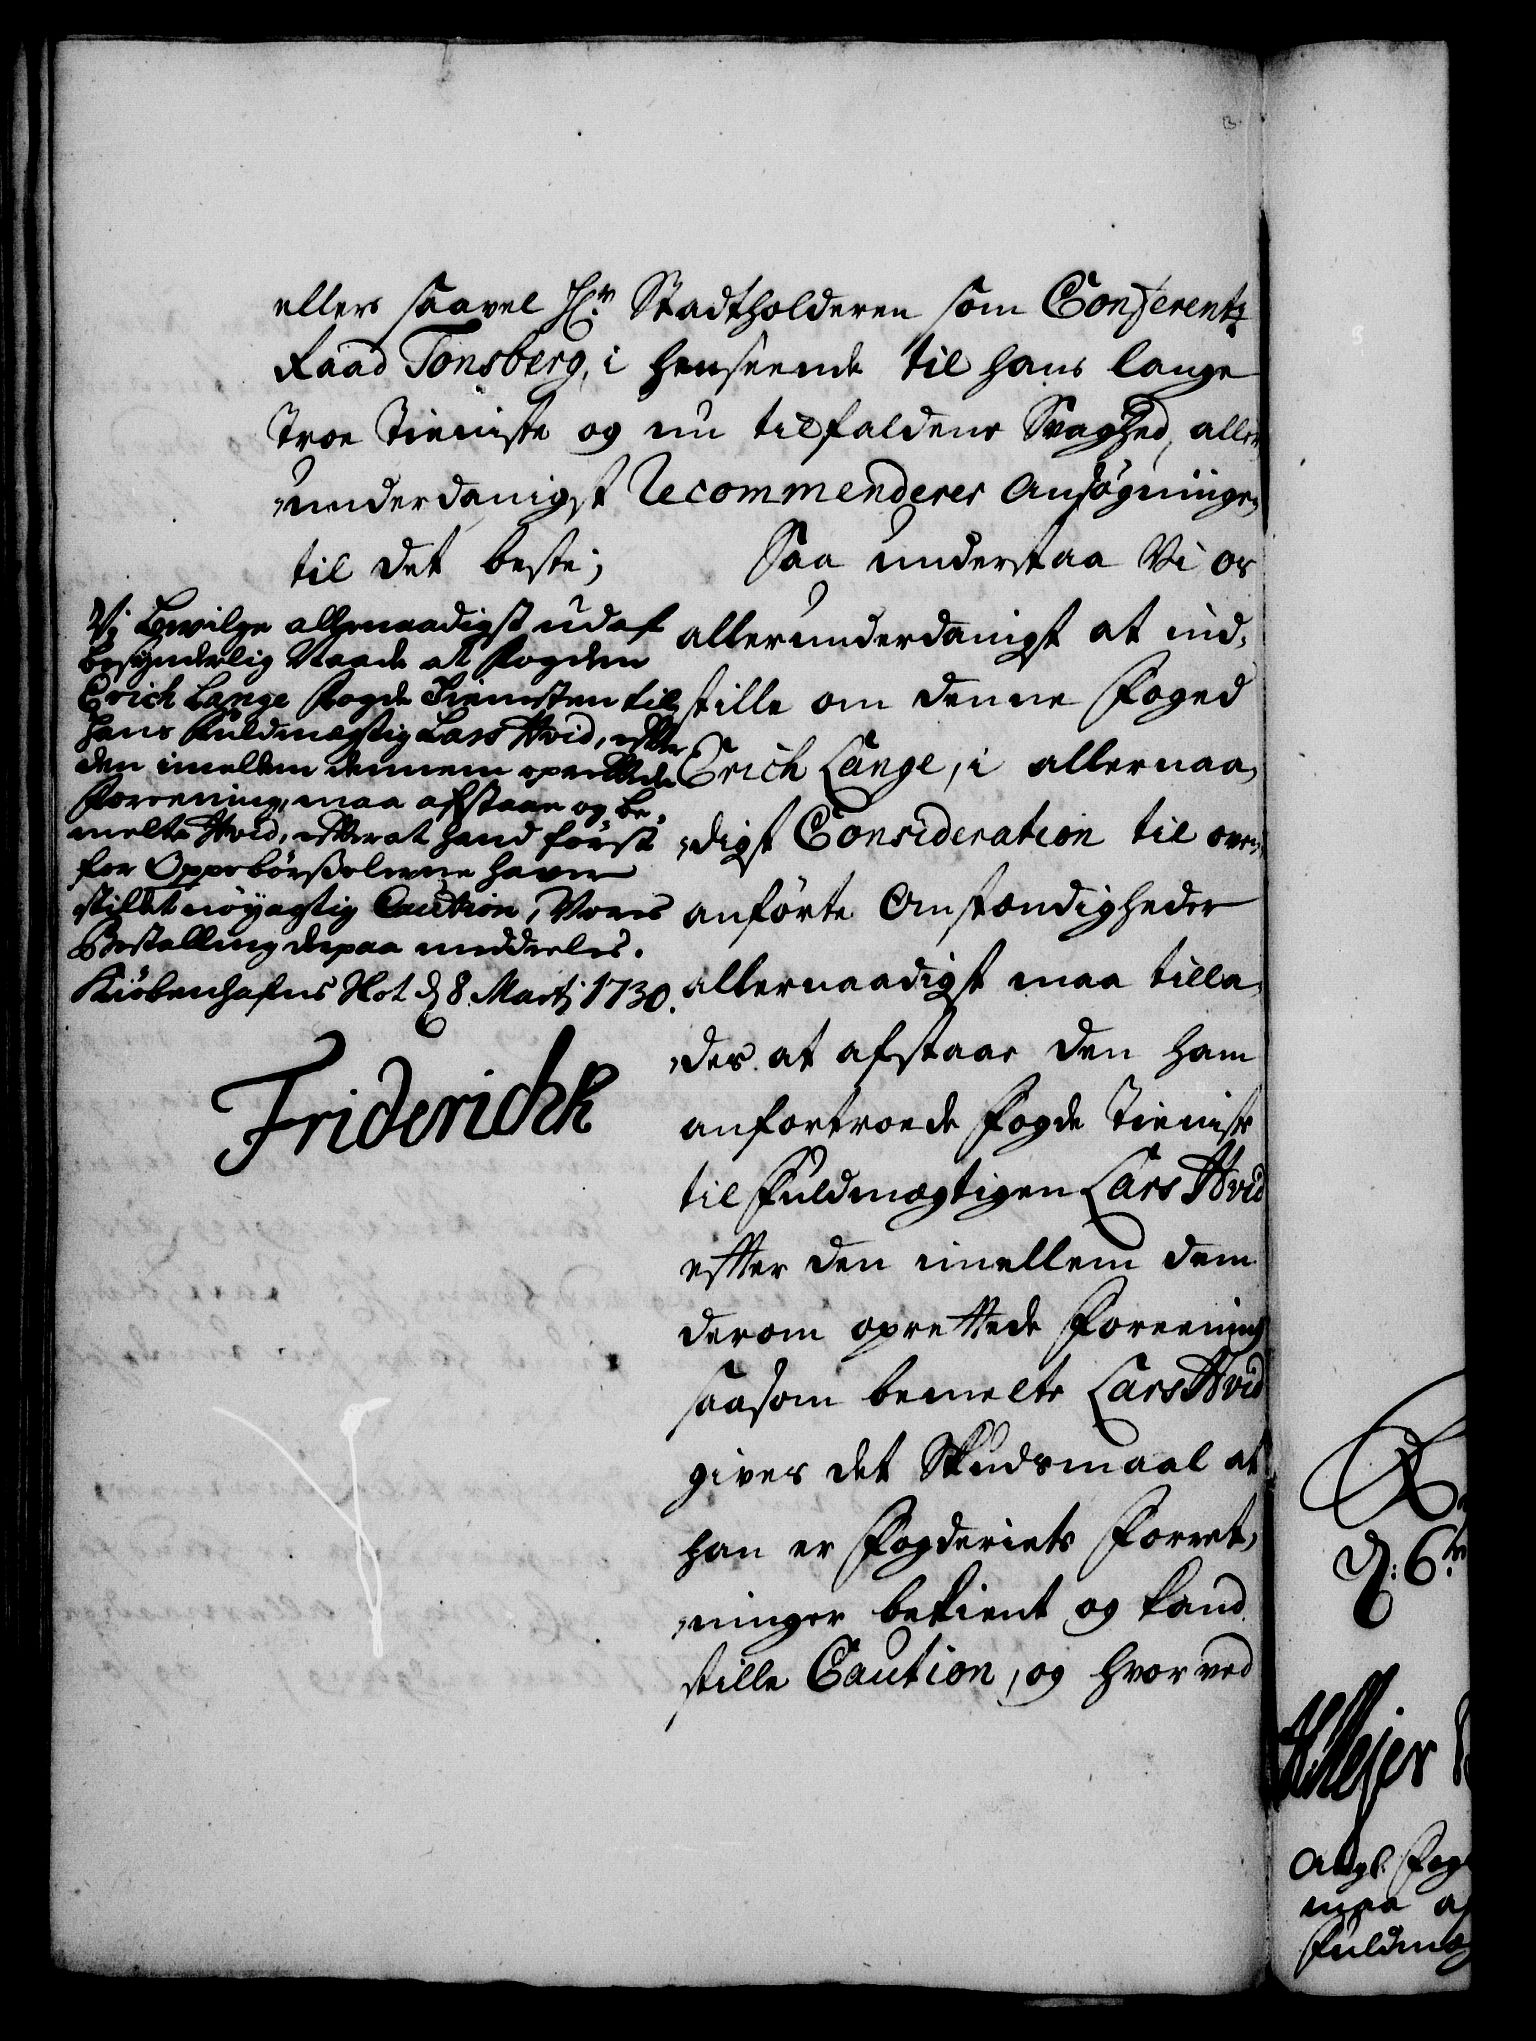 ellers saavel Hr. Stadtholderen som Conferentz
Raad Tonsberg, i henseende til hans lange
troe tieniste og nu tilfaldene Svaghed, aller
underdanigst Recommenderer Ansøgningen
til det beste; Saa understaa Vi os
allerunderdanigst at ind-
stille om denne Foged
Erich Lange, i allernaa-
digst Consideration til oven
anførte Omstændigheder
allernaadigst maa tilla-
des at afstaae den ham
anfortroede Fogde tieniste
til Fuldmægtigen Lars Hvid
efter den imellem dem
derom oprettede Foreening
saasom bemelte Lars Hvid
gives det Skudsmaal at
han er Fogderiets Forret-
ninger bekient og kand
stille Caution, og hvorved
Vj bevilge allernaadigst udaf
besynderlig Naade at Fogden
Erich Lange Fogde Tienisten til
hans Fuldmægtig Lars Hvid, efter
den imellem dennem oprettede
Foreening, maa afstaae og be-
melte Hvid, efter at hand først
for Oppebørselerne haver
stillet nøyagtig Caution, Vores
Bestalling derpaa meddeeles.
Kiøbenhafns Slot d. 8 Martj 1730.
Friderich R
d: 6te
Ang. Fog
maa af
Fuldmæg